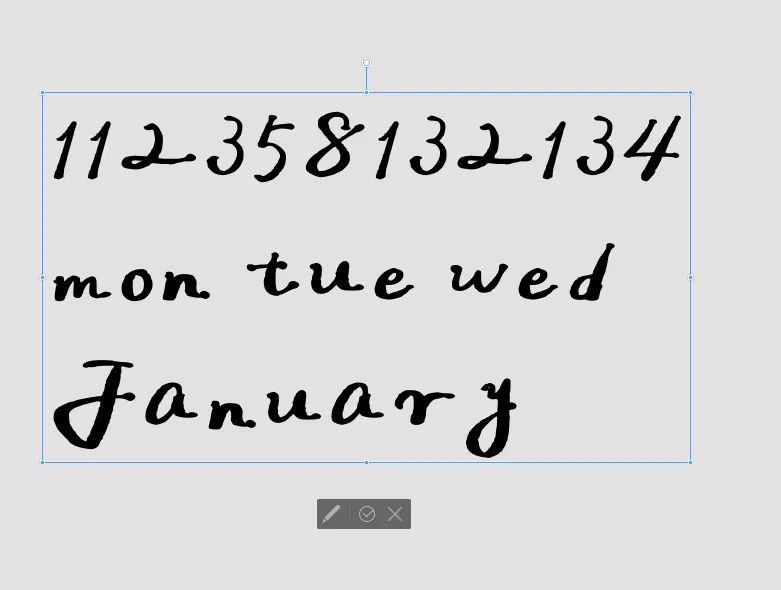 112358132134
mon tue wed
January